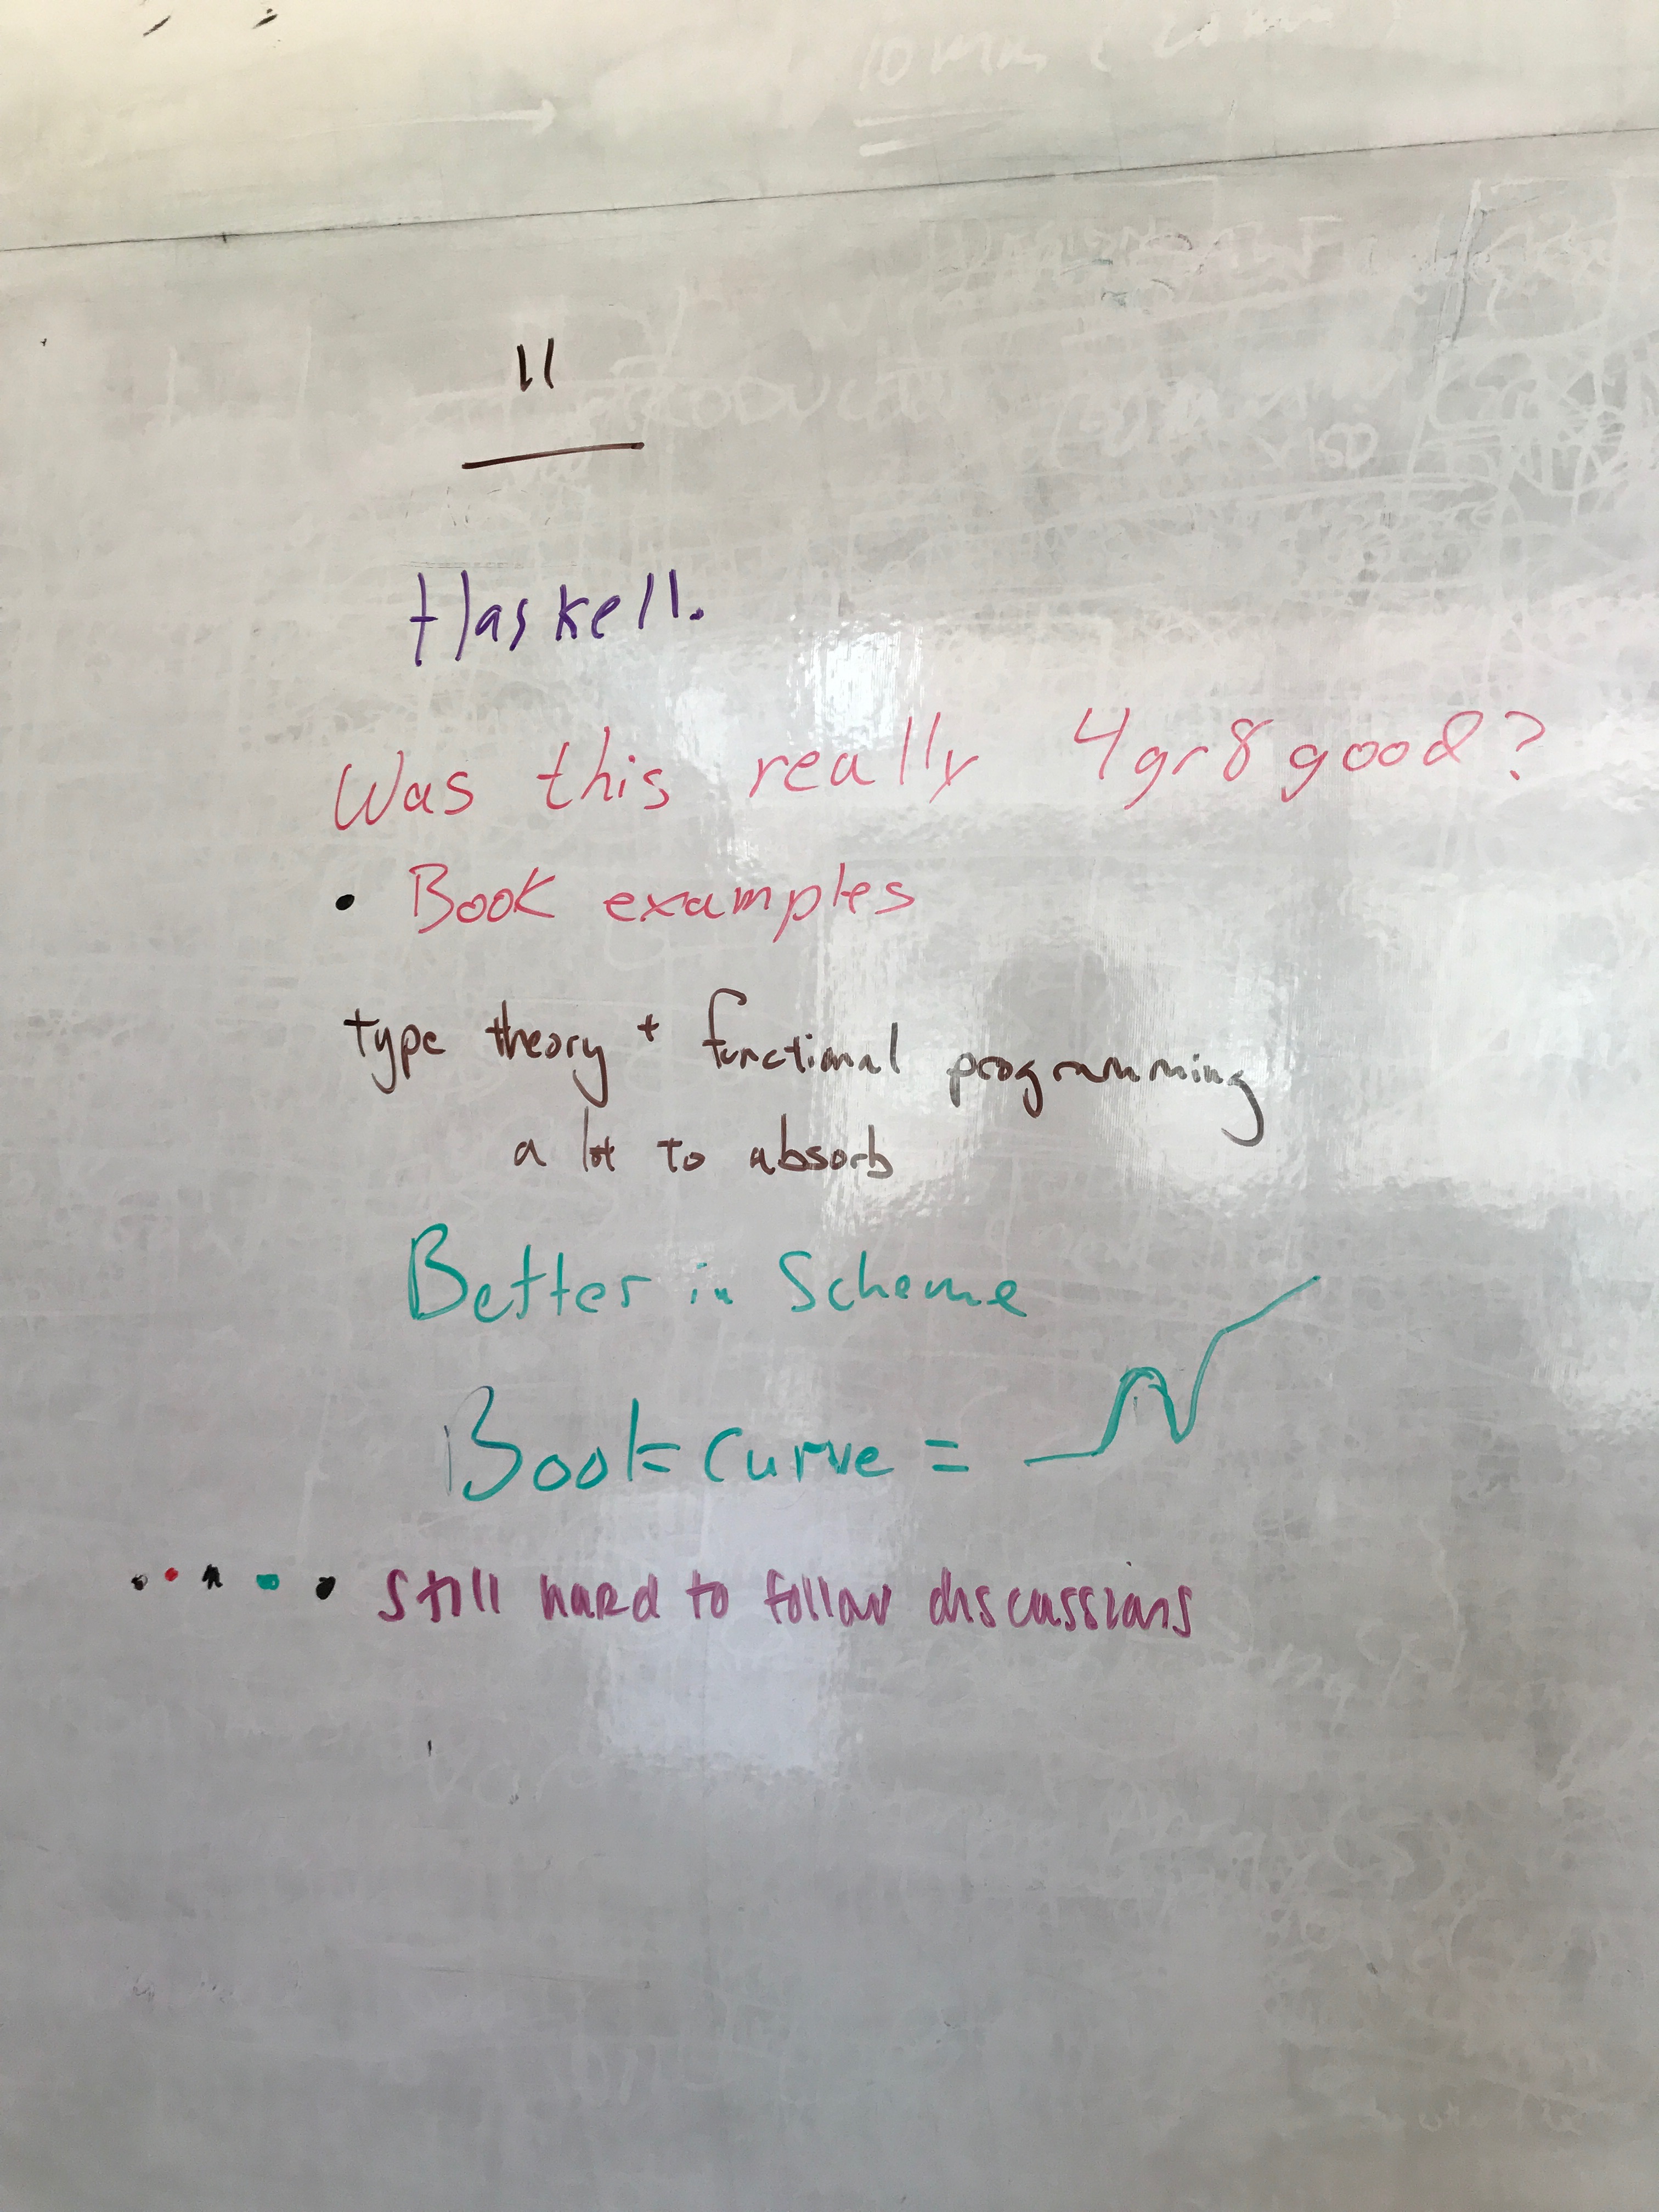 11
Haskell.
Was this really 4gr8good?
• Book examples
type theory + functional programming
a lot to absorb
Better in Scheme
Book curve =
• • • • • Still hard to follow discussions